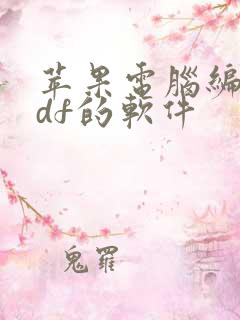 苹果電腦編
df的軟件
鬼羅